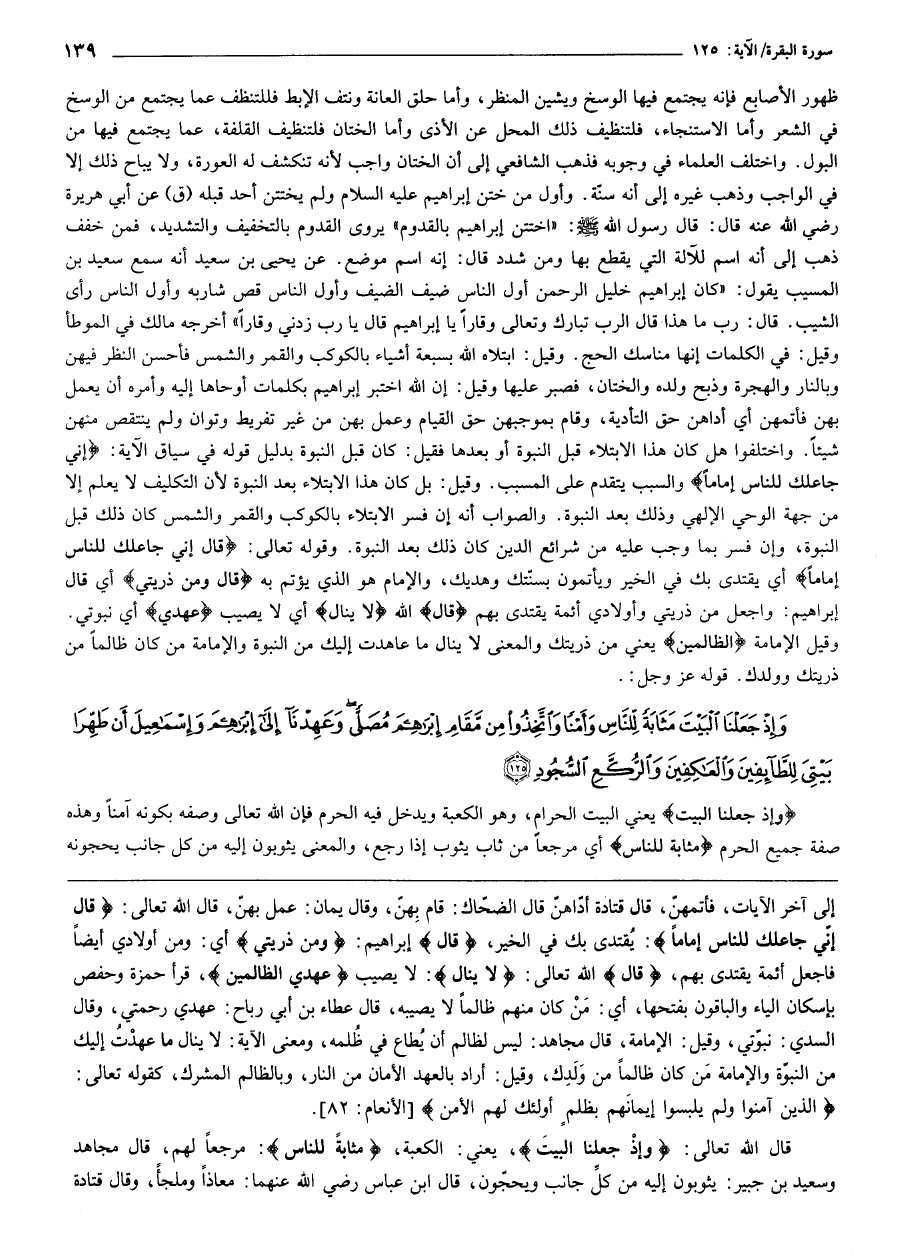 سورة البقرة/ الآية: ١٢٥ ١٣٩
ظهور الأصابع فإنه يجتمع فيها الوسخ ويشين المنظر، وأما حلق العانة ونتف الإبط فللتنظف عما يجتمع من الوسخ
في الشعر وأما الاستنجاء، فلتنظيف ذلك المحل عن الأذى وأما الختان فلتنظيف القلفة، عما يجتمع فيها من
البول. واختلف العلماء في وجوبه فذهب الشافعي إلى أن الختان واجب لأنه تنكشف له العورة، ولا يباح ذلك إلا
في الواجب وذهب غيره إلى أنه سنّة. وأول من ختن إبراهيم عليه السلام ولم يختتن أحد قبله (ق) عن أبي هريرة
رضي الله عنه قال: قال رسول الله ﷺ: «اختتن إبراهيم بالقدوم» يروى القدوم بالتخفيف والتشديد، فمن خفف
ذهب إلى أنه اسم للآلة التي يقطع بها ومن شدد قال: إنه اسم موضع. عن يحيى بن سعيد أنه سمع سعيد بن
المسيب يقول: «كان إبراهيم خليل الرحمن أول الناس ضيف الضيف وأول الناس قص شاربه وأول الناس رأى
الشيب. قال: رب ما هذا قال الرب تبارك وتعالى وقاراً يا إبراهيم قال يا رب زدني وقاراً» أخرجه مالك في الموطأ
وقيل: في الكلمات إنها مناسك الحج. وقيل: ابتلاه الله بسبعة أشياء بالكوكب والقمر والشمس فأحسن النظر فيهن
وبالنار والهجرة وذبح ولده والختان، فصبر عليها وقيل: إن الله اختبر إبراهيم بكلمات أوحاها إليه وأمره أن يعمل
بهن فأتمهن أي أداهن حق التأدية، وقام بموجبهن حق القيام وعمل بهن من غير تفريط وتوان ولم ينتقص منهن
شيئاً. واختلفوا هل كان هذا الابتلاء قبل النبوة أو بعدها فقيل: كان قبل النبوة بدليل قوله في سياق الآية: ﴿إني
جاعلك للناس إماماً﴾ والسبب يتقدم على المسبب. وقيل: بل كان هذا الابتلاء بعد النبوة لأن التكليف لا يعلم إلا
من جهة الوحي الإلهي وذلك بعد النبوة. والصواب أنه إن فسر الابتلاء بالكوكب والقمر والشمس كان ذلك قبل
النبوة، وإن فسر بما وجب عليه من شرائع الدين كان ذلك بعد النبوة. وقوله تعالى: ﴿قال إني جاعلك للناس
إماماً﴾ أي يقتدى بك في الخير ويأتمون بسنّتك وهديك، والإمام هو الذي يؤتم به ﴿قال ومن ذريتي﴾ أي قال
إبراهيم: واجعل من ذريتي وأولادي أئمة يقتدى بهم ﴿قال﴾ الله ﴿لا ينال﴾ أي لا يصيب ﴿عهدي﴾ أي نبوتي.
وقيل الإمامة ﴿الظالمين﴾ يعني من ذريتك والمعنى لا ينال ما عاهدت إليك من النبوة والإمامة من كان ظالماً من
ذريتك وولدك. قوله عز وجل: .
وَإِذْ جَعَلْنَا ٱلْبَيْتَ مَثَابَةً لِّلنَّاسِ وَأَمْنًا وَٱتَّخِذُوا۟ مِن مَّقَامِ إِبْرَٰهِـۧمَ مُصَلًّى ۖ وَعَهِدْنَآ إِلَىٰٓ إِبْرَٰهِـۧمَ وَإِسْمَٰعِيلَ أَن طَهِّرَا
بَيْتِىَ لِلطَّآئِفِينَ وَٱلْعَٰكِفِينَ وَٱلرُّكَّعِ ٱلسُّجُودِ ١٢٥
﴿وإذ جعلنا البيت﴾ يعني البيت الحرام، وهو الكعبة ويدخل فيه الحرم فإن الله تعالى وصفه بكونه آمناً وهذه
صفة جميع الحرم ﴿مثابة للناس﴾ أي مرجعاً من ثاب يثوب إذا رجع، والمعنى يثوبون إليه من كل جانب يحجونه
إلى آخر الآيات، فأتمهنّ، قال قتادة أدّاهنّ قال الضحّاك: قام بِهنّ، وقال يمان: عمل بهنّ، قال الله تعالى: ﴿ قال
إنّي جاعلك للناس إماماً ﴾: يُقتدى بك في الخير، ﴿ قال ﴾ إبراهيم: ﴿ ومن ذريتي ﴾ أي: ومن أولادي أيضاً
فاجعل أئمة يقتدى بهم، ﴿ قال ﴾ الله تعالى: ﴿ لا ينال ﴾: لا يصيب ﴿ عهدي الظالمين ﴾، قرأ حمزة وحفص
بإسكان الياء والباقون بفتحها، أي: مَنْ كان منهم ظالماً لا يصيبه، قال عطاء بن أبي رباح: عهدي رحمتي، وقال
السدي: نبوّتي، وقيل: الإمامة، قال مجاهد: ليس لظالم أن يُطاع في ظُلمه، ومعنى الآية: لا ينال ما عهدْتُ إليك
من النبوّة والإمامة مَن كان ظالماً من وَلَدِك، وقيل: أراد بالعهد الأمان من النار، وبالظالم المشرك، كقوله تعالى:
﴿ الذين آمنوا ولم يلبسوا إيمانَهم بظلمٍ أولئك لهم الأمن ﴾ [الأنعام: ٨٢].
قال الله تعالى: ﴿ وإذْ جعلنا البيتَ ﴾، يعني: الكعبة، ﴿ مثابةً للناس ﴾: مرجعاً لهم، قال مجاهد
وسعيد بن جبير: يثوبون إليه من كلِّ جانب ويحجّون، قال ابن عباس رضي الله عنهما: معاذاً وملجأً، وقال قتادة